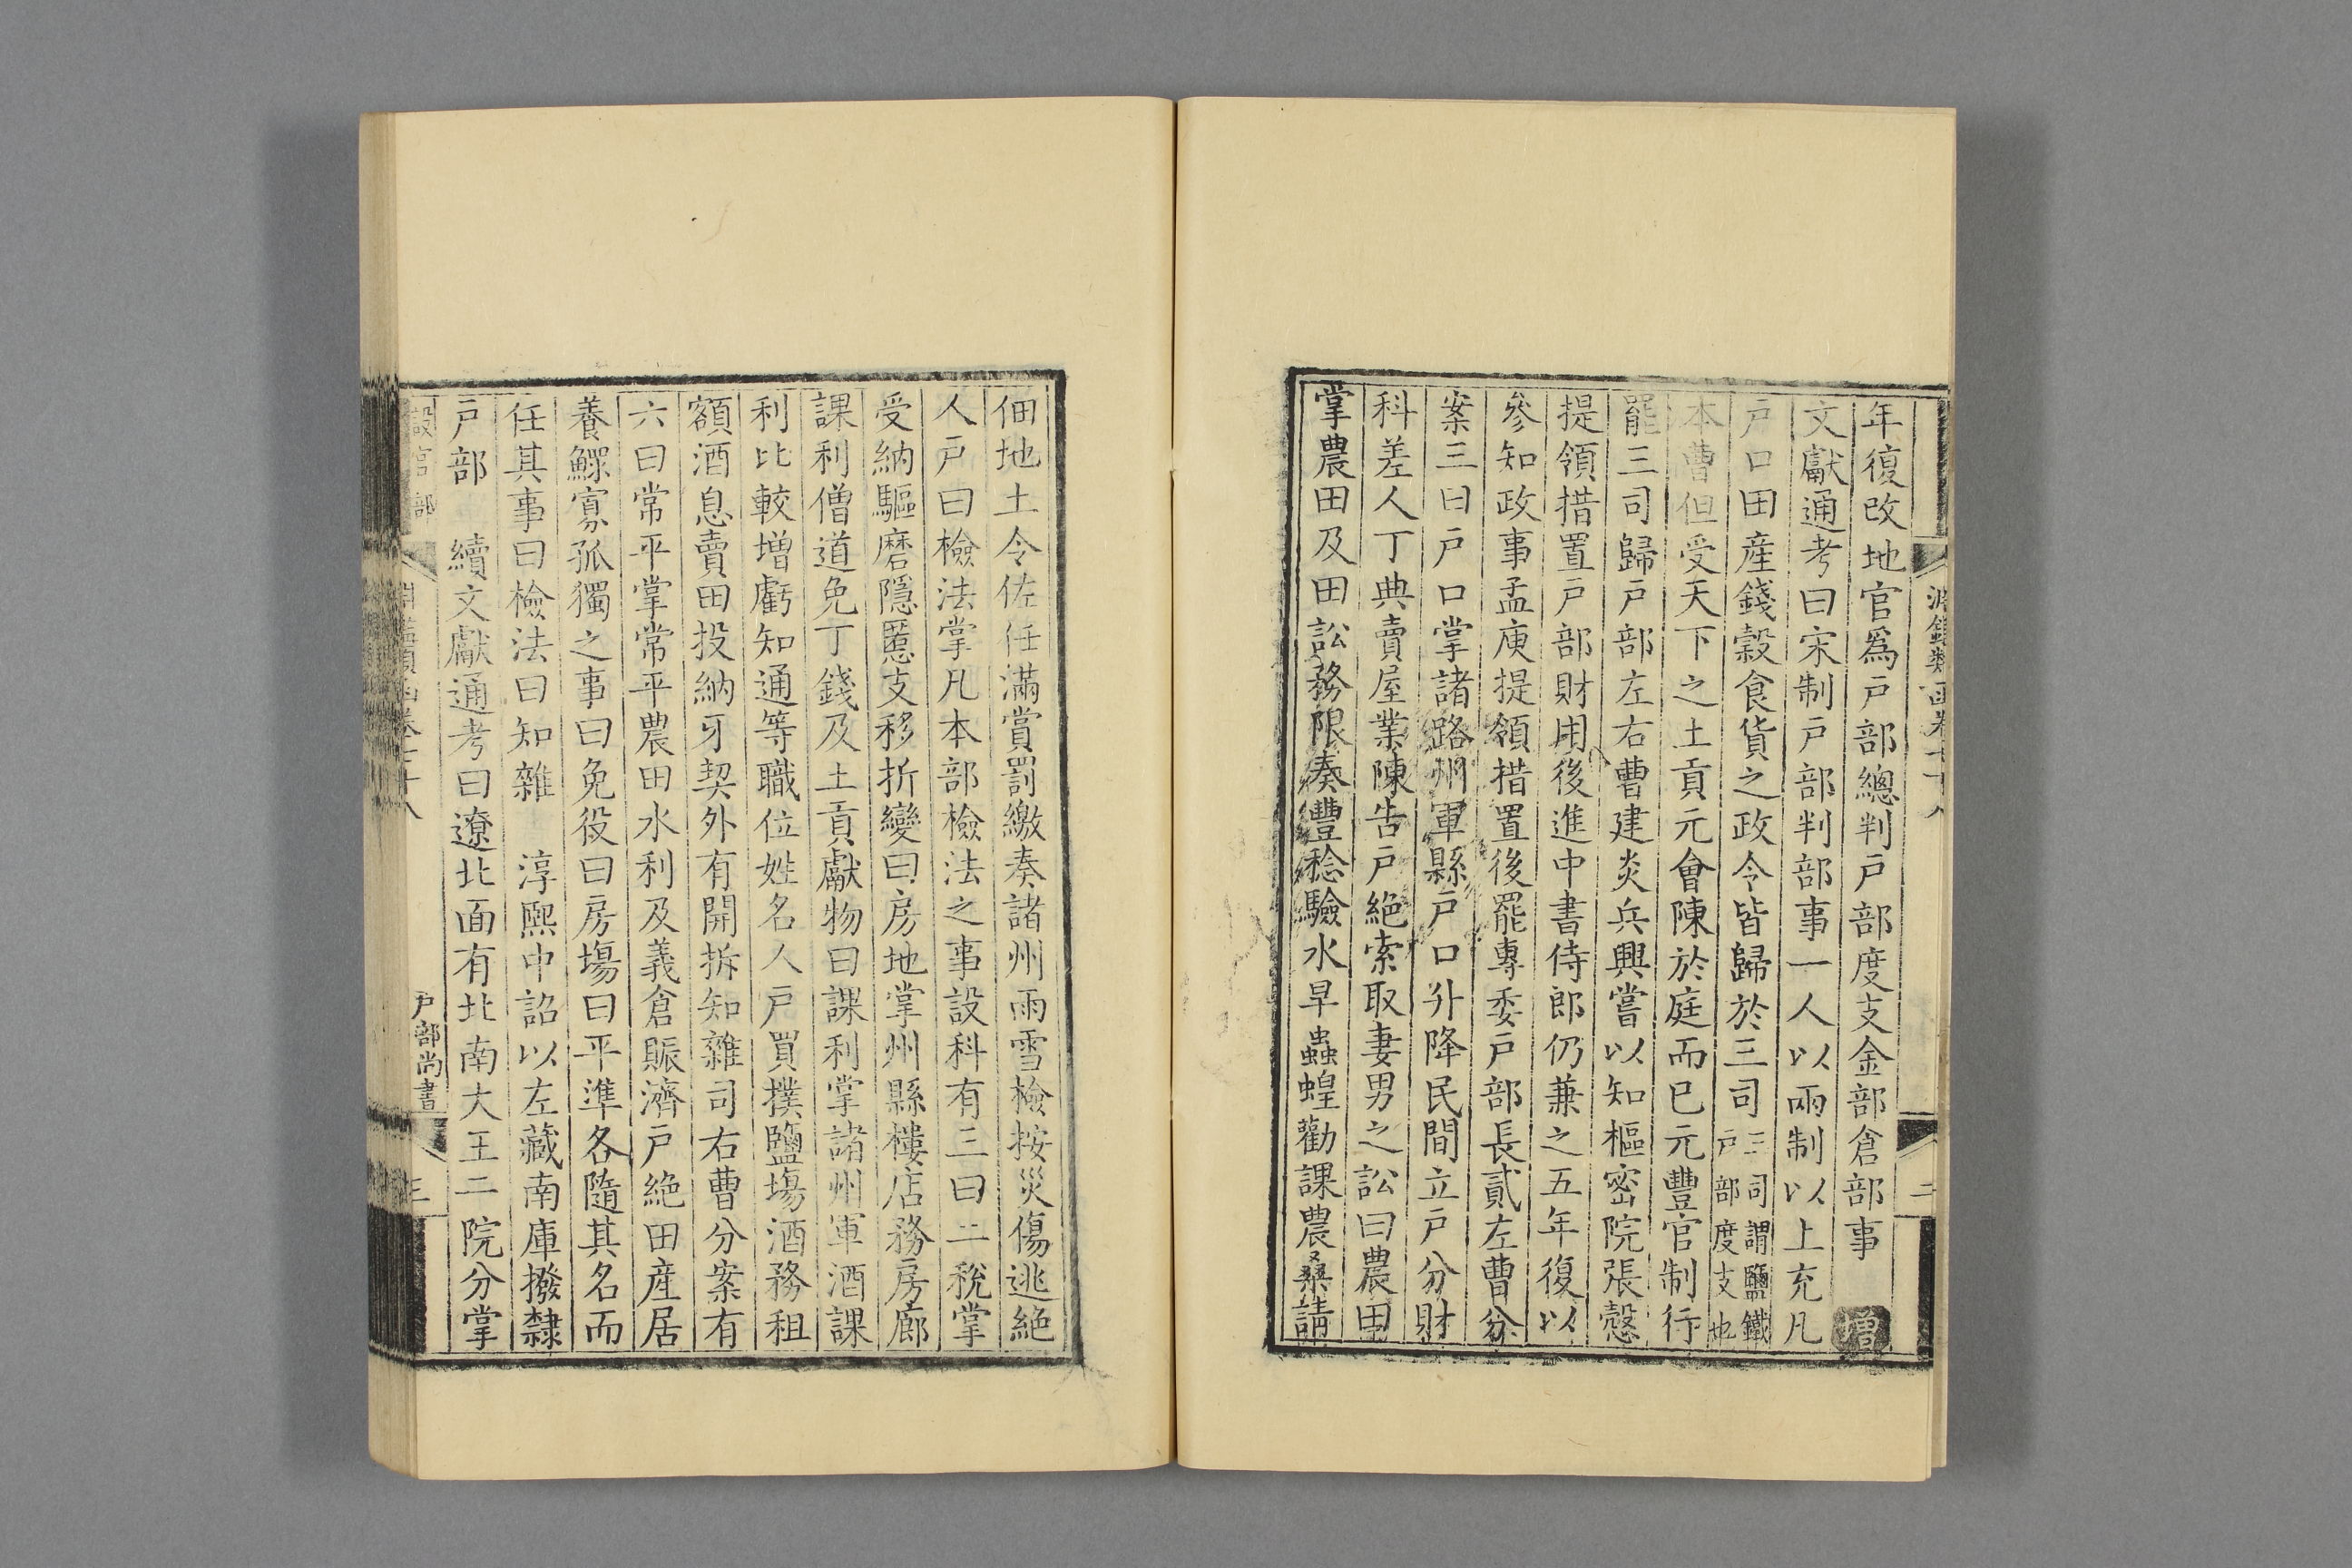 年復改地官爲戸部總判戸部度支金部倉部事 增
文獻通考曰宋制戸部判部事一人以兩制以上充凡
戸口田産錢穀食貨之政令皆歸於三司三司謂鹽鐵戸部度支也
本曹但受天下之土貢元會陳於庭而已元豐官制行
罷三司歸戸部左右曹建炎兵興嘗以知樞密院張愨
提領措置戸部財用後進中書侍郎仍兼之五年復以
參知政事孟庾提領措置後罷專委戸部長貳左曹分
案三曰戸口掌諸路州軍縣戸口升降民間立戸分財
科差人丁典賣屋業陳告戸絶索取妻男之訟曰農田
掌農田及田訟務限奏豐稔驗水旱蟲蝗勸課農桑請
佃地土令佐任滿賞罰繳奏諸州雨雪檢按災傷逃絶
人戸曰檢法掌凡本部檢法之事設科有三曰二稅掌
受納驅磨隱匿支移折變曰房地掌州縣樓店務房廊
課利僧道免丁錢及土貢獻物曰課利掌諸州軍酒課
利比較增虧知通等職位姓名人戸買撲鹽場酒務租
額酒息賣田投納牙契外有開拆知雜司右曹分案有
六曰常平掌常平農田水利及義倉賑濟戸絶田産居
養鰥寡孤獨之事曰免役曰房場曰平準各隨其名而
任其事曰檢法曰知雜 淳熙中詔以左藏南庫撥隸
戸部 續文獻通考曰遼北面有北南大王二院分掌
設官部 淵鑑類函卷七十八 戸部尚書 三